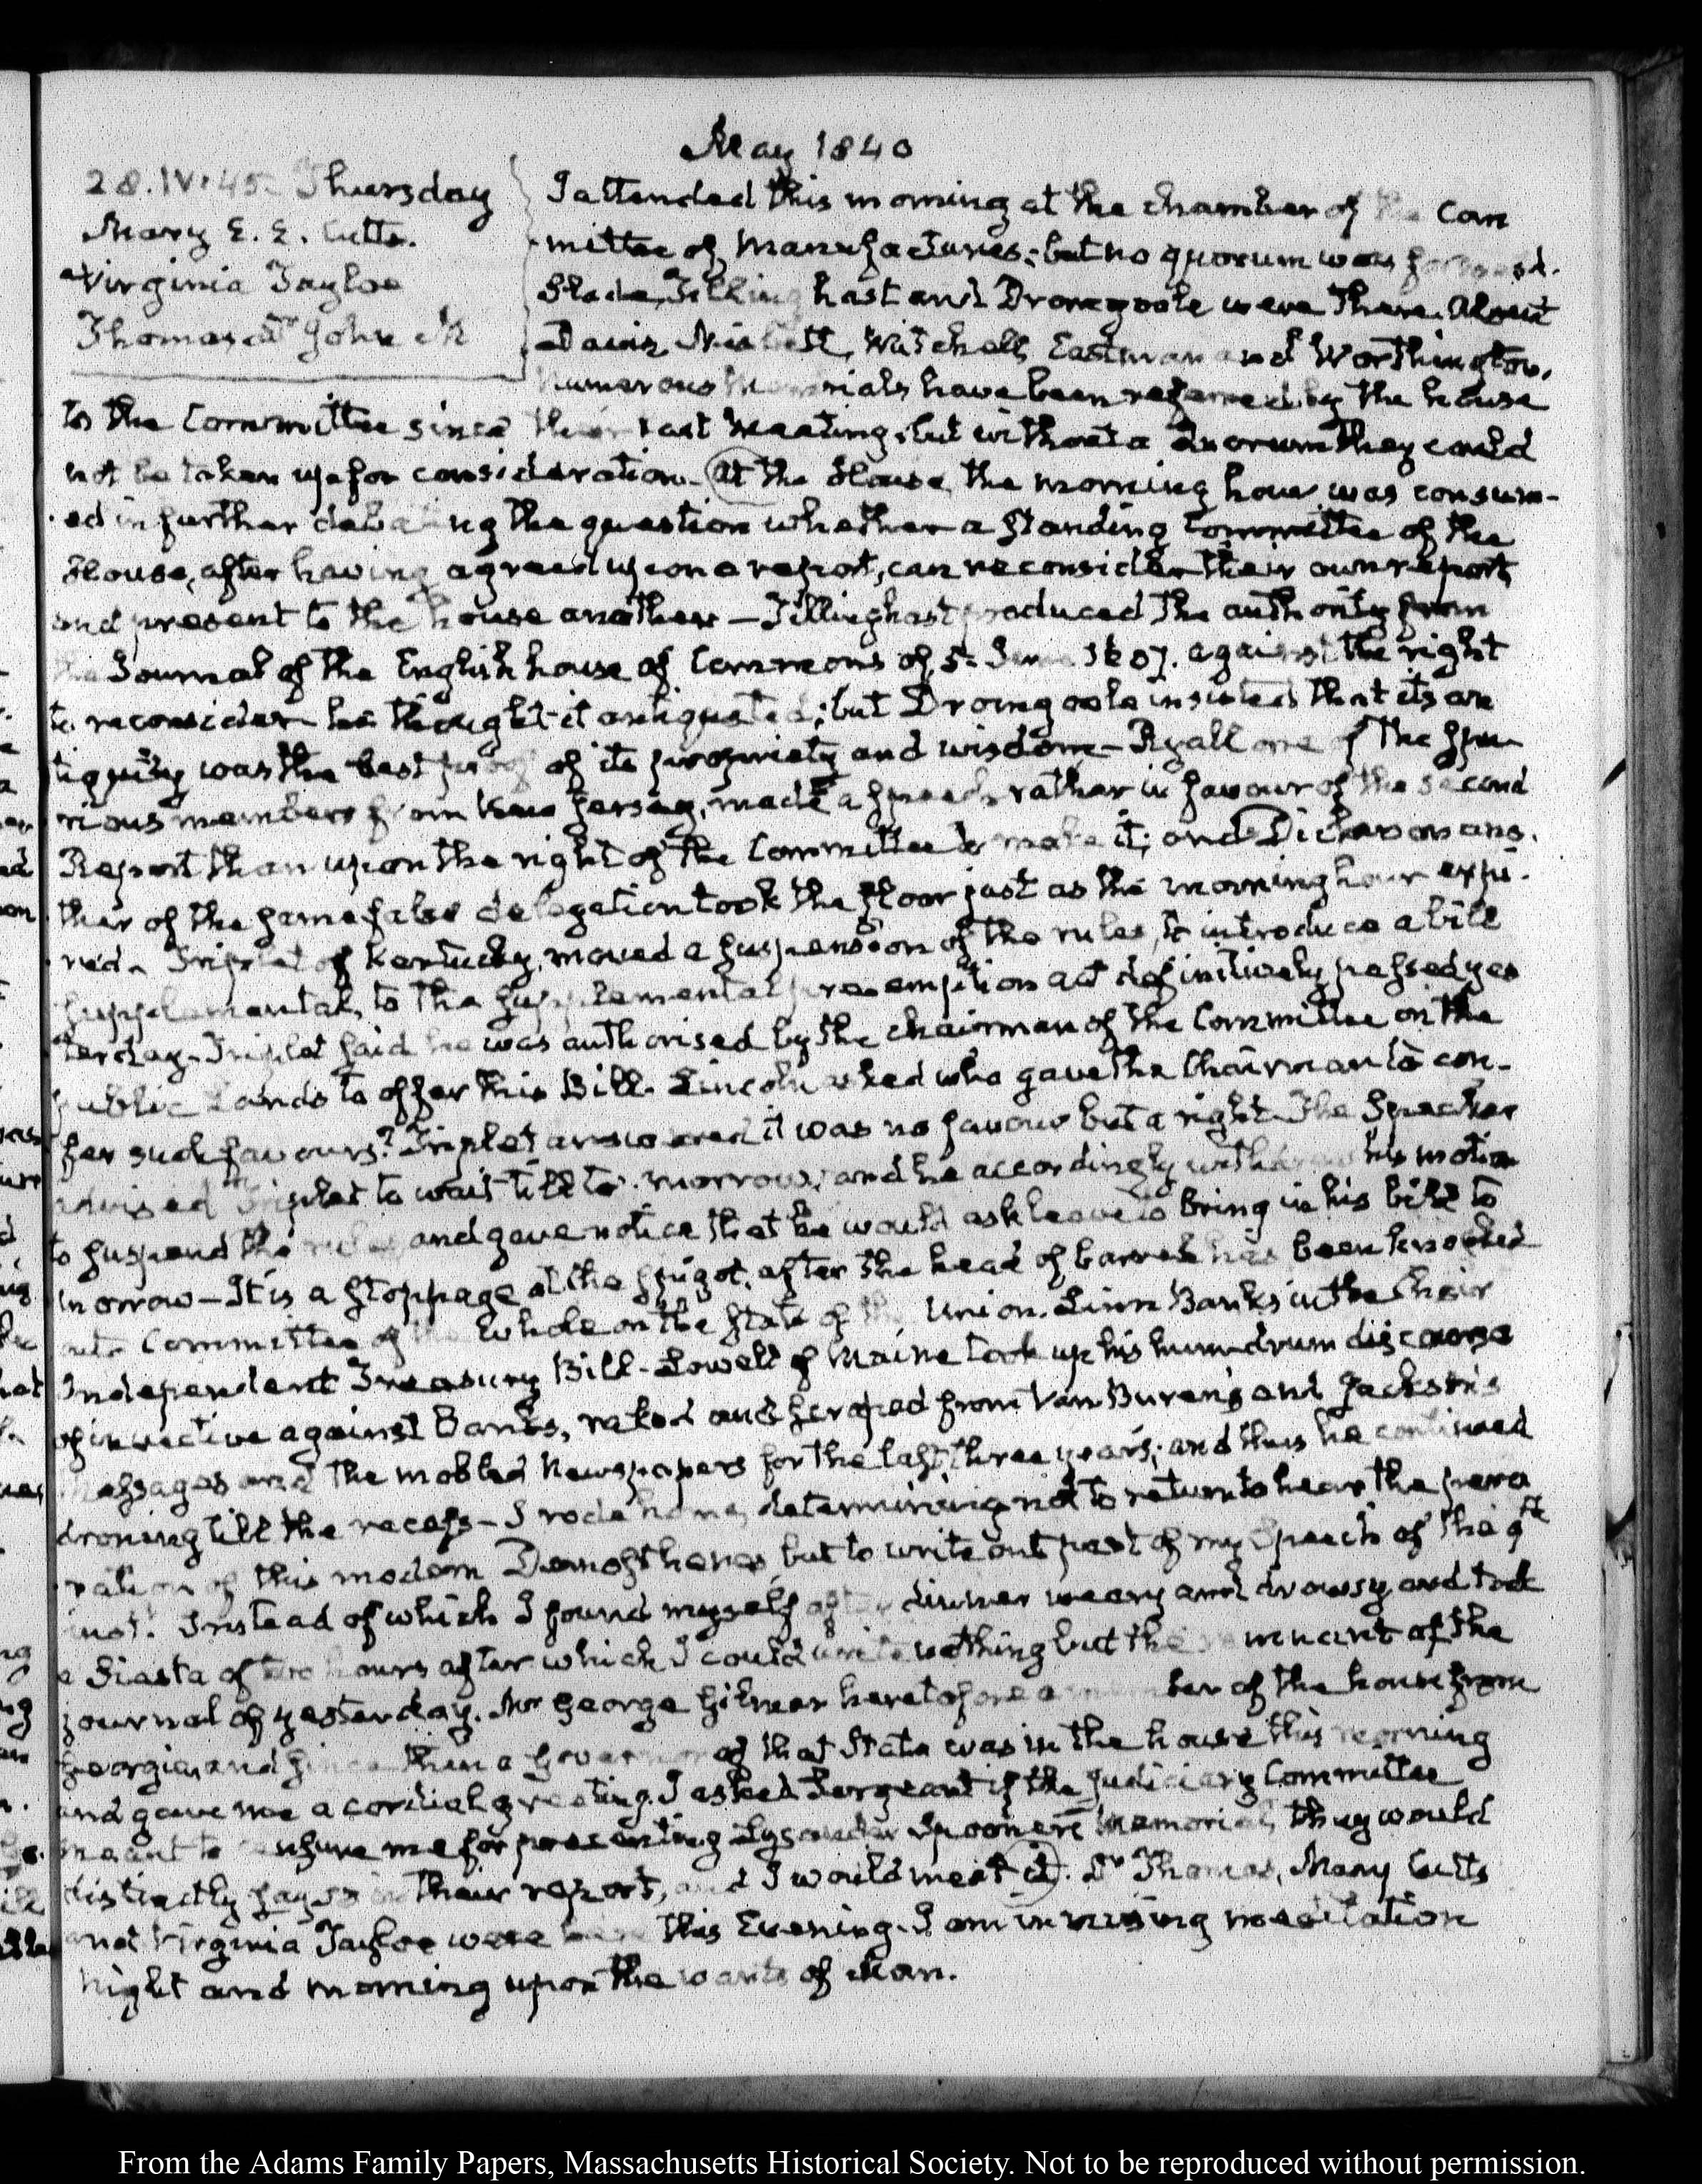 May 1840
28. IV:45. Thursday
Mary E. E. Cutts.
Virginia Tayloe
Thomas Dr John M
I attended this morning at the chamber of the Com
mittee of Manufactures; but no quorum was formed.
Slade, Tillinghast and Dromgoole were there. Absent
Davis, Nisbett, Mitchell, Eastman and Worthington,
numerous Memorials have been referred by the house
to the Committee since their last Meeting, but without a Quorum they could
not be taken up for consideration. At the House, the morning hour was consum-
ed in further debating the question whether a Standing Committee of the
House, after having agreed upon a report, can reconsider their own report
and present to the house another — Tillinghast produced the authority from
the Journal of the English house of Commons of 5. June 1607. against the right
to reconsider he thought it antiquated; but Dromgoole insisted that its an
tiquity was the best proof of its propriety and wisdom — Ryall one of the spu
rious members from New Jersey, made a speech rather in favour of the second
Report than upon the right of the Committee to make it; and Dickerson ano.
ther of the same false delegation took the floor just as the morning hour expi.
red. Triplet of Kentucky, moved a suspension of the rules, to introduce a bill
supplemental, to the supplemental preemption act definitively passed yes
terday. Triplet said he was authorised by the chairman of the Committee on the
public Lands to offer this Bill. Lincoln asked who gave the Chairman to con-
fer such favours? Triplet answered it was no favour but a right. The Speaker
advised Triplet to wait till to-morrow, and he accordingly withdrew his motion
to suspend the rules and gave notice that he would ask leave to bring in his bill to
morrow — It is a stoppage at the spigot, after the head of barrel has been knocked
out. Committee of the Whole on the State of the Union. Linn Banks in the Chair
Independent Treasury Bill. Lowell of Maine took up his humdrum discourse
of invective against Banks, raked and scraped from Van Buren's and Jackson's
Messages and the mobled Newspapers for the last three years; and thus he continued
droning till the recess — I rode home, determining not to return to hear the pero
ration of this modern Demosthenes, but to write out part of my Speech of the 9th
inst. Instead of which I found myself after dinner weary and drowsy and took
a Siesta of two hours after which I could write nothing but the remnant of the
journal of yesterday. Mr George Gilmer heretofore a member of the house from
Georgia, and since then a Governor of that State was in the house this morning
and gave me a cordial greeting. I asked Sergeant if the Judiciary Committee
meant to censure me for presenting Lysander Spooner's Memorial, they would
distinctly say so in their report, and I would meet it. Dr Thomas, Mary Cutts
and Virginia Tayloe were here this Evening. I am in musing meditation
night and morning upon the wants of Man.
From the Adams Family Papers, Massachusetts Historical Society. Not to be reproduced without permission.